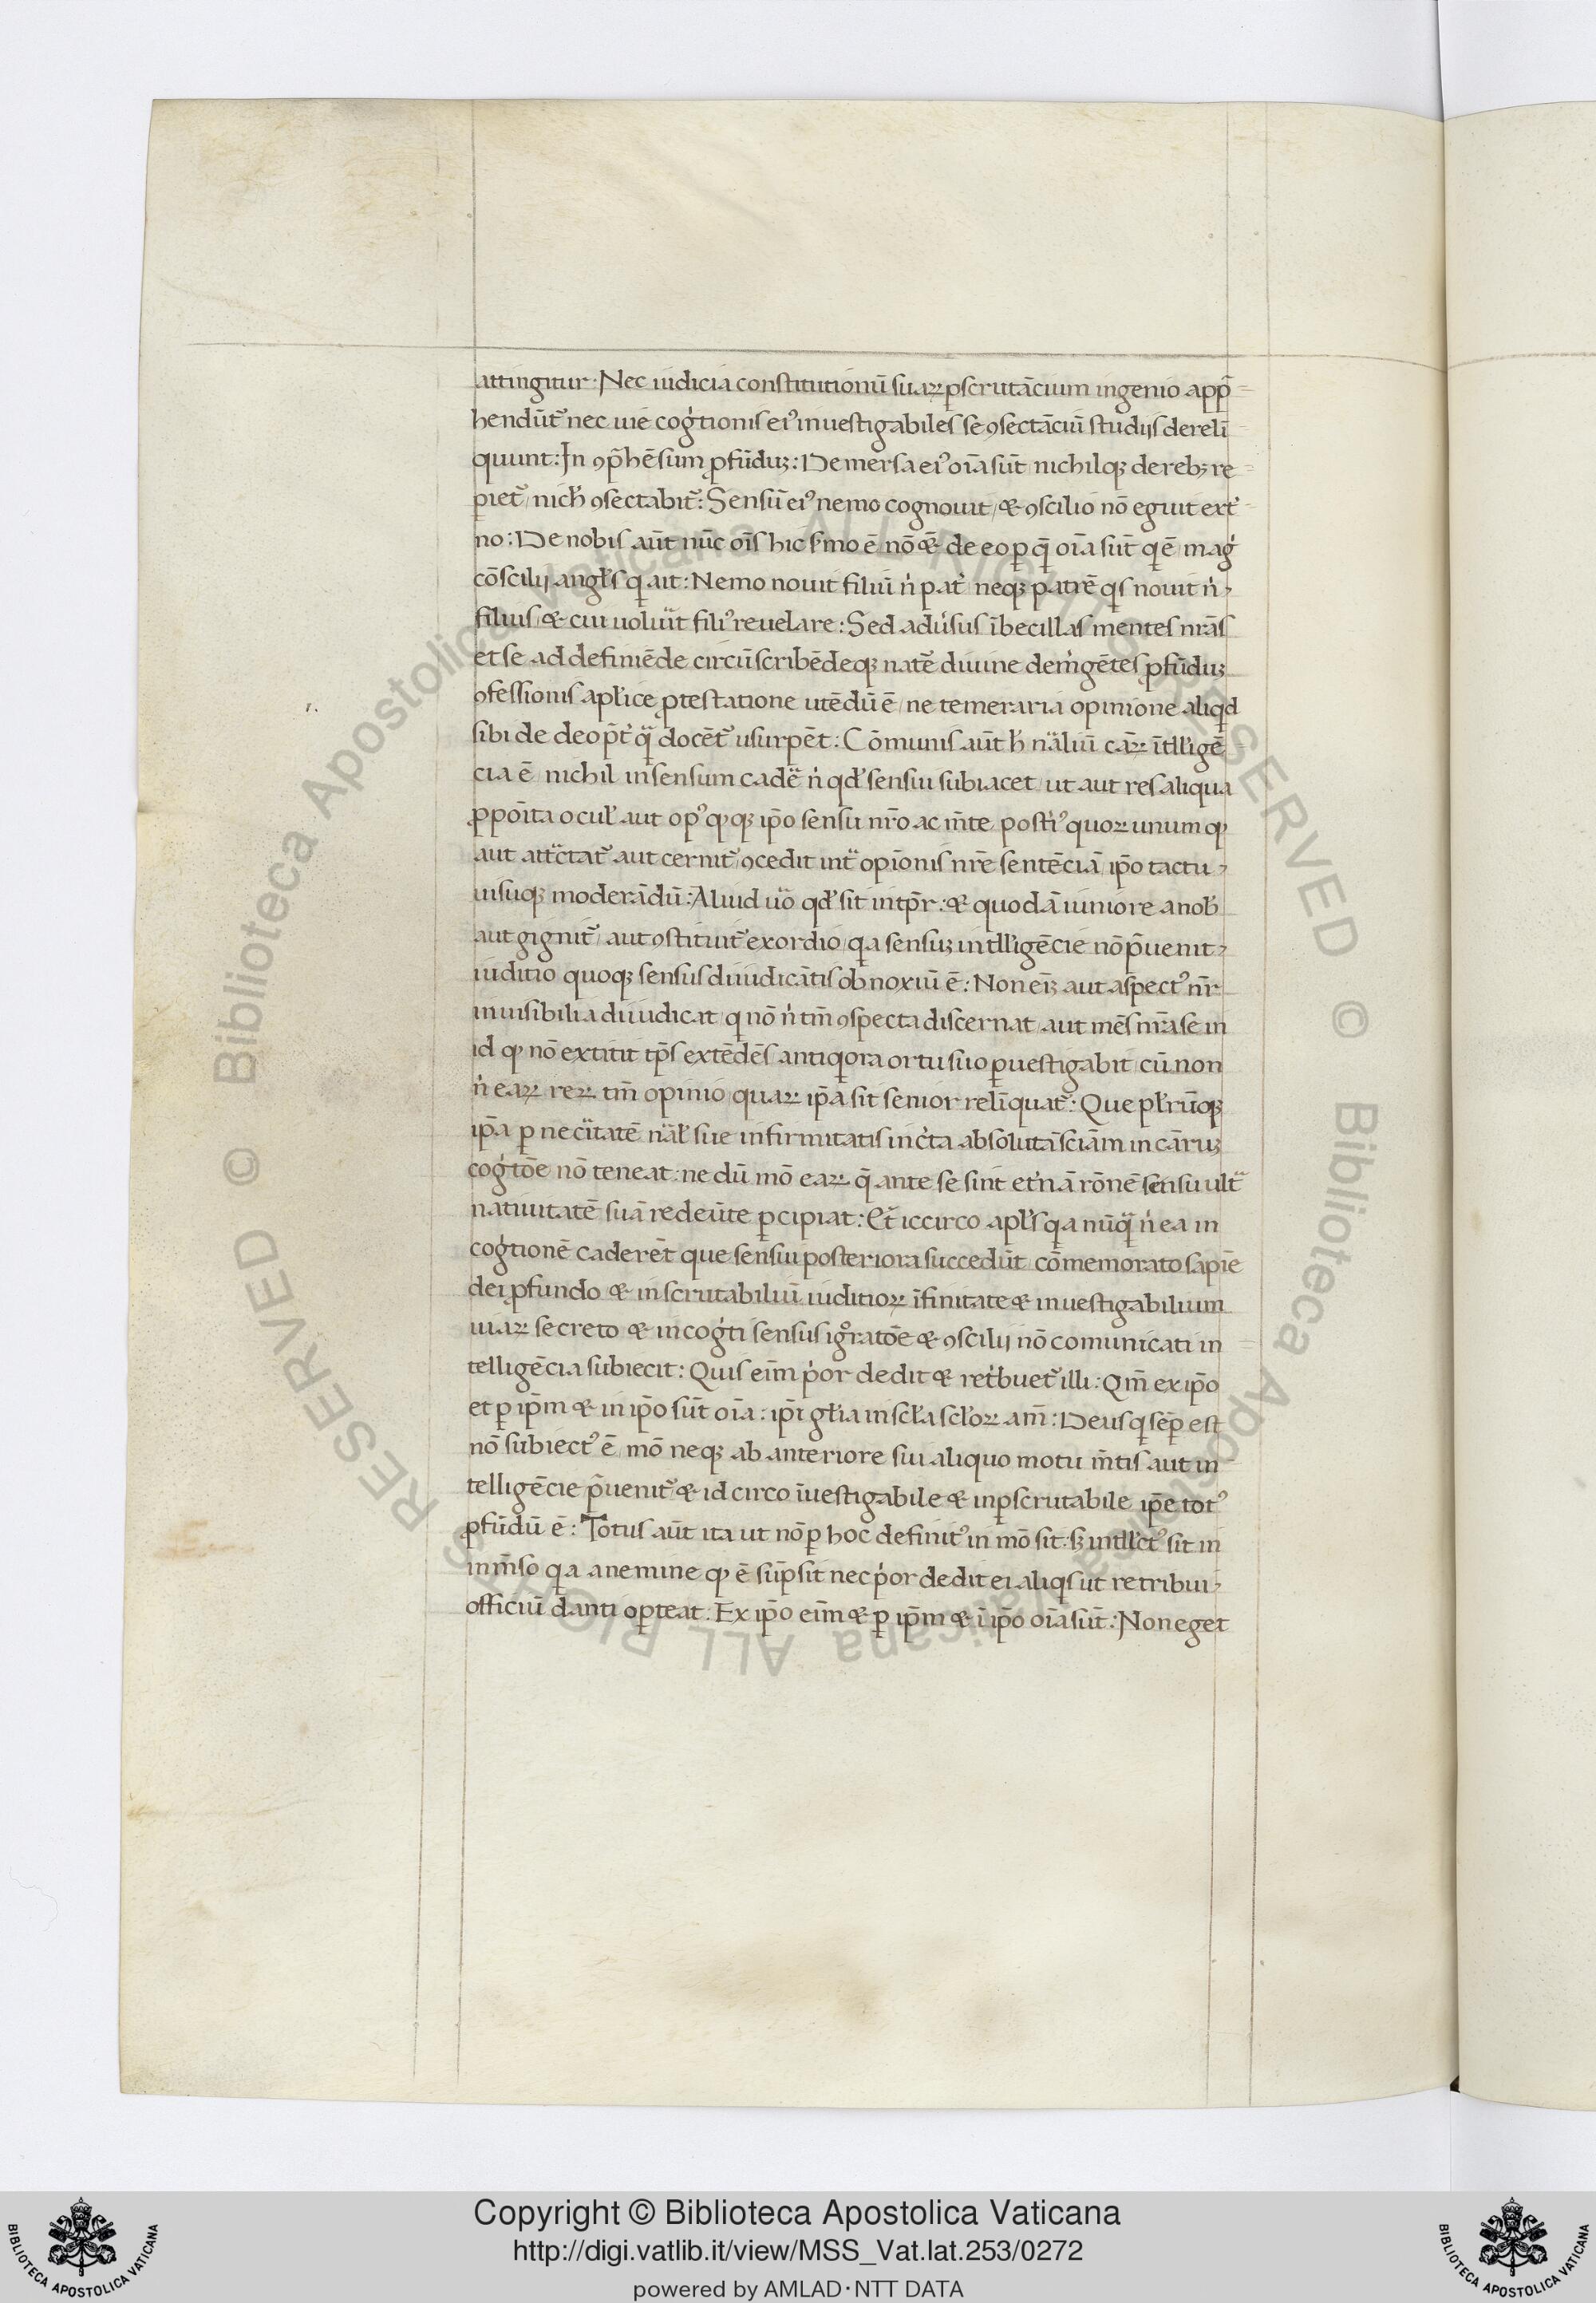 attingitur: Nec iudicia constitutionū suaꝝ ꝑscrutācium ingenio app̄
hendūt᷑ nec uie cog̍tionis ei᷒ inuestigabiles se ꝯsectāciū studijs dereli̅
quunt: In ꝯp̄hēsum ꝓfūduꝫ: Demersa ei᷒ oīa sūt nichilqꝫ de rebꝫ re
piet᷑ nich̍ ꝯsectabit᷑: Sensū ei᷒ nemo cognouit / & ꝯscilio nō eguit ext̍
no: De nobis aūt nūc oīs hic s̍mo ē nō & de eo ꝑ quē oīa sūt q ē mag̍
cōscilij angl̍s q ait: Nemo nouit filiū n̍ pat̍ neqꝫ patrē qs nouit n̍
filius / & cui uolu̍it fili᷒ reuelare: Sed adu̍sus ībecillas mentes nr̄as
et se ad definiēde circūscribēdeqꝫ natē diuine dem̍gētes ꝓfūduꝫ
ꝯfessionis apl̍ice ꝓtestatione utēdū ē / ne temeraria opinione aliqd
sibi de deo p̄t̍ quā docēt᷑ usurpēt: Cōmunis aūt h̍ nāliū cāꝝ ītll̍igē
cia ē / nichil in sensum cadē n̍ qd̍ sensui subiacet / ut aut res aliqua
ꝓpoīta ocul̍ aut op᷒ qꝫ ip̄o sensu nr̄o ac m̄te post̍i᷒ quoꝝ unum qꝫ
aut attc̍tat᷑ aut cernit᷑ ꝯcedit int̍ opīonis nr̄e sentēciā / ip̄o tactu
uisuqꝫ moderādū: Aliud uo̍ qd̍ sit intp̄r: & quodā iuniore a nob̍
aut gignit᷑ / aut ꝯstituit᷑ exordio / qa sensuꝫ intll̍igēcie nō p̄uenit
iuditio quoqꝫ sensus diiudicātis obnoxiū ē: Non eīꝫ aut aspect᷒ nr̄
inuisibilia diiudicat / q nō n̍ tm̄ ꝯspecta discernat / aut mēs nr̄a se in
id qꝫ nō extitit tp̄s extēdēs antiqora ortu suo ꝑuestigabit / cū non
n̍ eaꝝ reꝝ tm̄ opinio / quaꝝ ip̄a sit senior relīquat᷑: Que pl̍rūqꝫ
ip̄a ꝑ necītatē nāl̍ sue infirmitatis inc̍ta absolutā sciām in cāruꝫ
cog̍tōe nō teneat: ne dū mō eaꝝ q̄ ante se sint et̍nā rōnē sensu ult̍
natiuitatē suā redeūte ꝑcipiat: Et iccirco apl̍s qa nūqā n̍ ea in
cog̍tionē caderēt que sensui posteriora succedūt cōmemorato sapīe
dei ꝓfundo & inscrutabiliū iuditioꝝ īfinitate & inuestigabilium
uiaꝝ secreto & incog̍ti sensus ig̊ratōe & ꝯscilij nō comunicati in
telligēcia subiecit: Quis eīm p̍or dedit & ret̍buet᷑ illi: Qm̄ ex ip̄o
et ꝑ ip̄m & in ip̄o sūt oīa: ip̄i gl̍ia in scl̍a scl̍oꝝ am̄: Deus q sēꝑ est
nō subiect᷒ ē mō neqꝫ ab anteriore sui aliquo motu m̄tis aut in
telligēcie p̄uenit᷑ & id circo īuestigabile & inꝑscrutabile ip̄e tot᷒
ꝓfūdū ē: Totus aūt ita ut nō ꝑ hoc definit᷒ in mō sit: sꝫ intll̍ct᷒ sit in
inm̄so qa a nemine qꝫ ē sūpsit nec p̍or dedit ei aliqs ut retribui
officiū danti oꝑteat: Ex ip̄o eīm & ꝑ ip̄m & ī ip̄o oīa sūt: Non eget
Copyright © Biblioteca Apostolica Vaticana
http://digi.vatlib.it/view/MSS_Vat.lat.253/0272
powered by AMLAD·NTT DATA